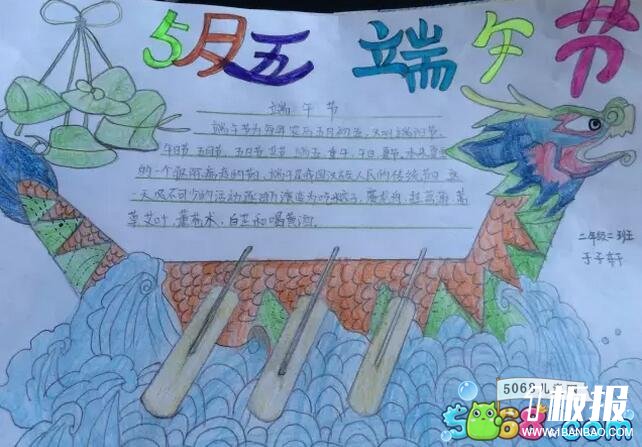 5月五 端午节
端午节
端午节为每年农历五月初五,又叫端阳节,
午日节、五月节、艾节、端五、重午、午日、夏节。本来是夏季
的一个驱除瘟疫的节,端午是我国汉族人民的传统节日,这
一天必不可少的活动逐渐演变为吃粽子,赛龙舟,挂菖蒲、蒿
草、艾叶,薰苍术、白芷和喝黄酒。
二年级二班
于子轩
板报
WWW.1BANBAO.COM